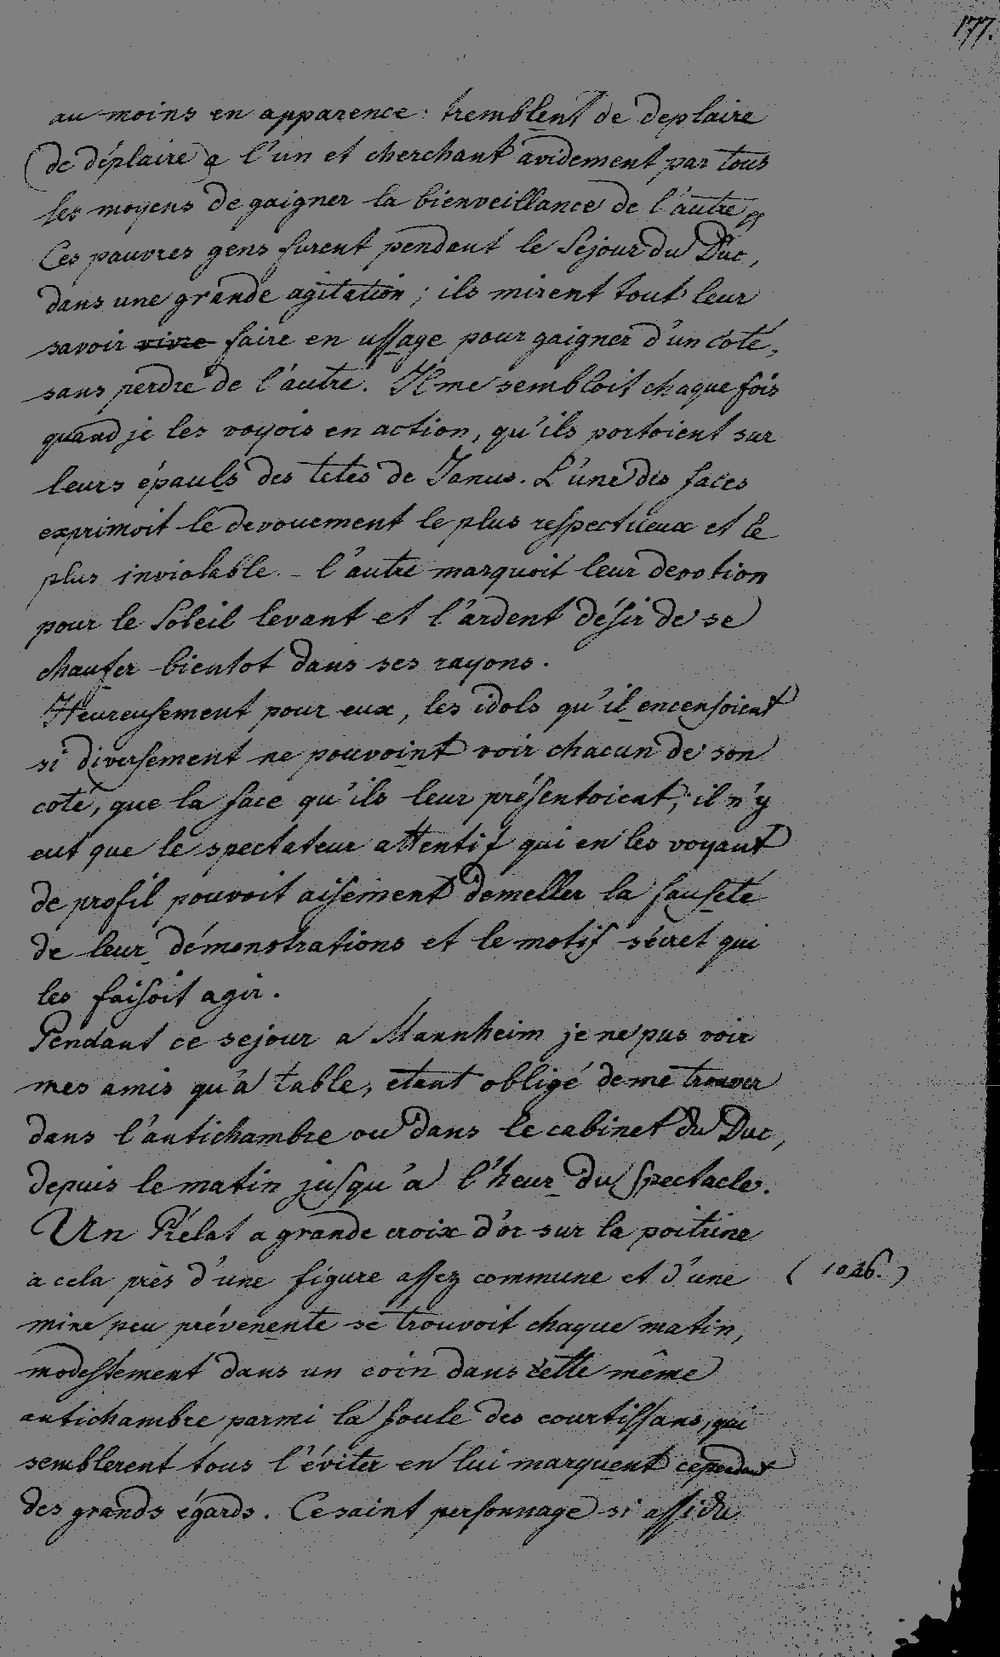 177.
au moins en apparence: tremblent de deplaire
(de déplaire) a l'un et cherchant avidement par tous
les moyens de gaigner la bienveillance de l'autre
Ces pauvres gens furent pendant le Sejour du Duc,
dans une grande agitation; ils mirent tout leur
savoir vivre faire en ussage pour gaigner d'un coté,
sans perdre de l'autre. Il me sembloit chaque fois
quand je les voyois en action, qu'ils portoient sur
leurs épauls des tetes de Janus. L'une des faces
exprimoit le devouement le plus respectueux et le
plus inviolable - l'autre marquoit leur devotion
pour le Soleil levant et l'ardent désir de se
chaufer bientot dans ses rayons.
Heureusement pour eux, les idols qu'il encensoient
si diversement ne pouvoint voir chacun de son
coté, que la face qu'ils leur présentoient; il n'y
eut que le spectateur attentif qui en les voyant
de profil pouvoit aisement demeller la fauseté
de leur démonstrations et le motif sécret qui
les faisoit agir.
Pendant ce sejour a Mannheim je ne pus voir
mes amis qu'a table, etant obligé de me trouver
dans l'antichambre ou dans le cabinet du Duc,
depuis le matin jusqu'a l'heur du Spectacle.
Un Prélat a grande croix d'or sur la poitrine
a cela près d'une figure assez commune et d'une (1026.)
mine peu prévenente se trouvoit chaque matin,
modestement dans un coin dans cette même
antichambre parmi la foule des courtissans, qui
semblerent tous l'éviter en lui marquent cependant
des grands égards. Ce saint personnage si assidu